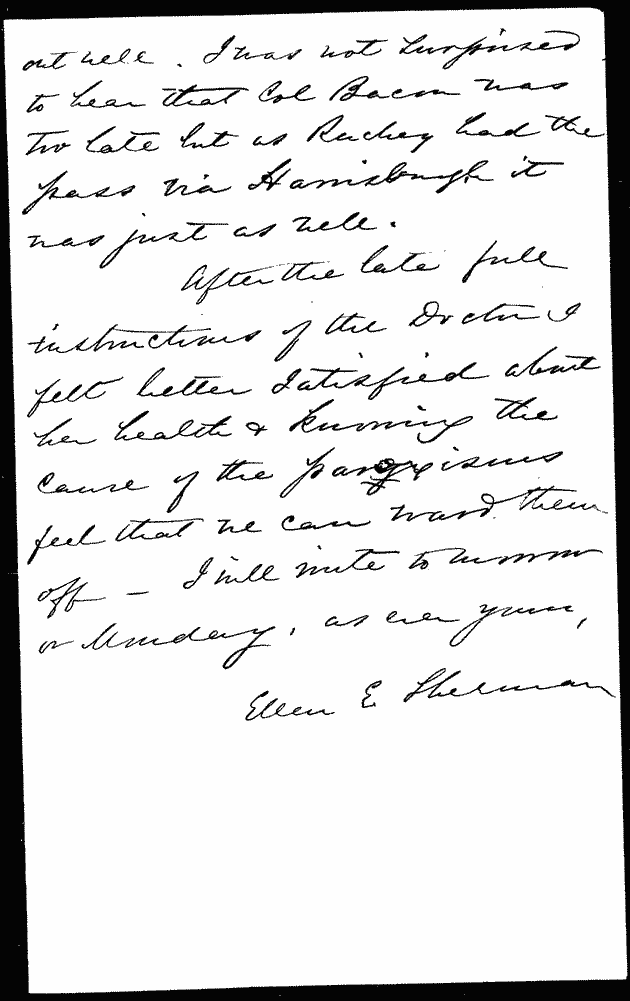 out well. I was not surprised
to hear that Col Bacon was
too late but as Ruchey had the
pass via Harrisburgh it
was just as well.
After the late full
instructions of the Doctor I
felt better satisfied about
her health & knowing the
cause of the paroxisms
feel that we can ward them
off — I will write to morrow
or Monday, as ever yours,
Ellen E. Sherman